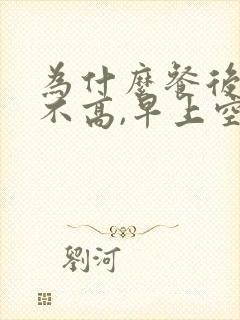 為什麼餐後
不高,早上空
劉河